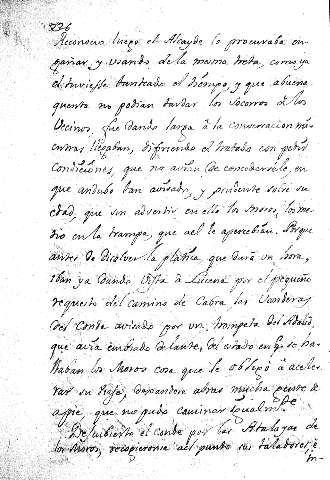 Reconocio luego el Alcayde lo procuraba en
gañar y usando de la mesma treta, como ya
el tuviesse tanteado el tiempo, y que a buena
quenta no podian tardar los socorros de los
Vecinos, fue dando larga à la conversacion mi
entras llegaban, difiriendo el tratado con pedir
Condiciones, que no avian de concederle, en
que andubo tan avisado, y prudente sobre su
edad, que sin advertir en ello los Moros, los me
tio en la trampa, que a el le apercebian. Porque
antes de disolver la platica, que duro una hora,
iban ya dando vista à Lucena por el pequeño
requesto del camino de Cabra las Vanderas
del Conde avisado por un trompeta del
que avia embiado delante, del estado en q se ha
llaban los Moros cosa que le obligo à acele
rar su dexandose atras mucha gente de
a pie, que no pudo caminar igualmte
Descubierto el Conde por las Atalayas de
los Moros, recogieronse al punto sus taladores, è